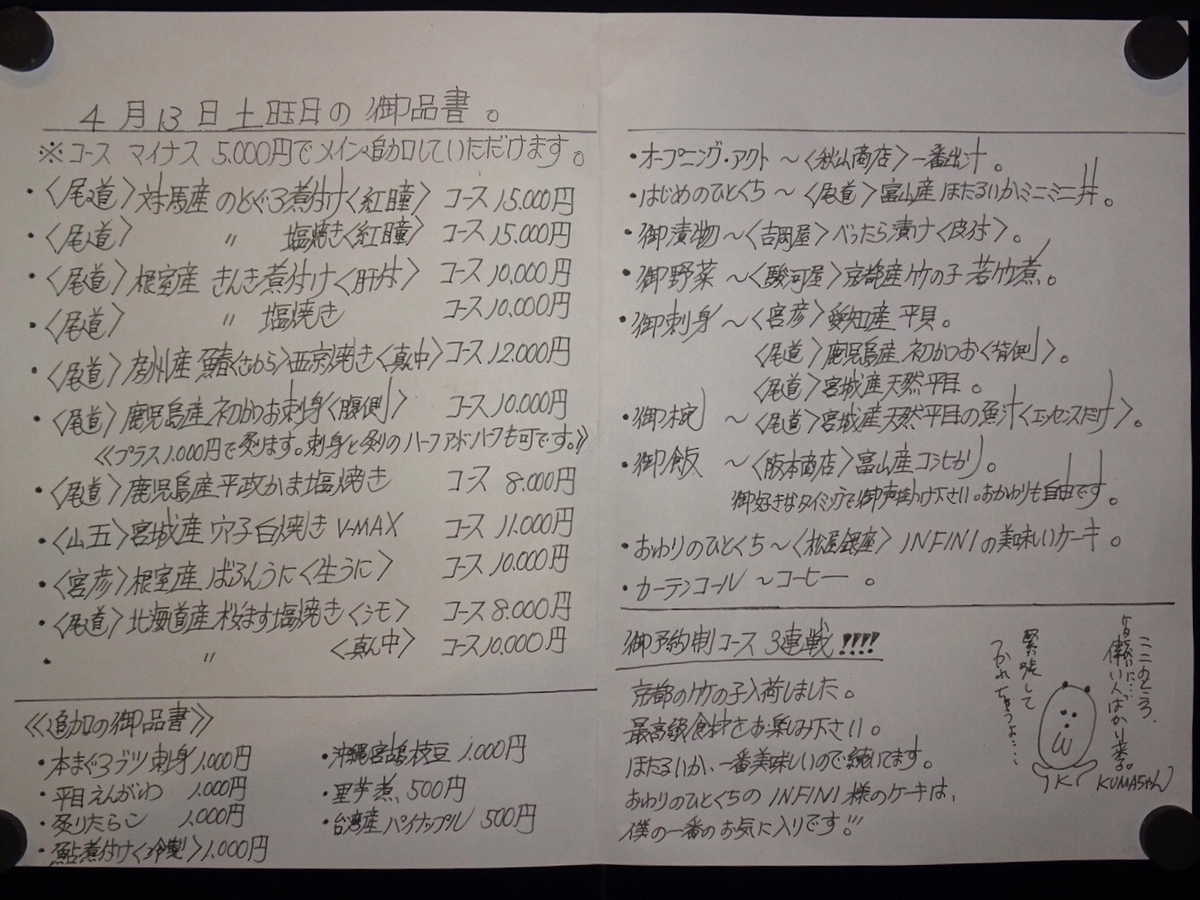 4月13日土曜日の御品書。
※コース マイナス 5.000円でメイン追加していただけます。
・〈尾道〉対馬産 のどぐろ煮付け〈紅瞳〉 コース 15.000円
・〈尾道〉 〃 塩焼き〈紅瞳〉 コース 15.000円
・〈尾道〉根室産 きんき煮付け〈肝付〉 コース 10.000円
・〈尾道〉 〃 塩焼き コース 10.000円
・〈尾道〉房州産 鰆〈さわら〉西京焼き〈真ん中〉コース 12.000円
・〈尾道〉鹿児島産 初かつお刺身〈腹側〉 コース 10.000円
《プラス1.000円で炙ります。刺身と炙りのハーフアンドハーフも可です。》
・〈尾道〉鹿児島産 平政かま塩焼き コース 8.000円
・〈山五〉宮城産 穴子白焼き V-MAX コース 11.000円
・〈宮彦〉根室産 ばふんうに〈生うに〉 コース 10.000円
・〈尾道〉北海道産 桜ます塩焼き〈シモ〉 コース 8.000円
・ 〃 〈真ん中〉 コース 10.000円
《追加の御品書》
・本まぐろブツ刺身 1.000円
・平目えんがわ 1.000円
・炙りたらこ 1.000円
・鮎煮付け〈冷製〉1.000円
・沖縄宮古島枝豆 1.000円
・里芋煮 500円
・台湾産パイナップル 500円
・オープニング・アクト 〜〈秋山商店〉一番出汁。
・はじめのひとくち 〜 〈尾道〉富山産 ほたるいかミニミニ丼。
・御漬物 〜〈吉岡屋〉べったら漬け〈皮付〉。
・御野菜 〜〈駿河屋〉京都産竹の子 若竹煮。
・御刺身 〜〈宮彦〉愛知産 平貝。
〈尾道〉鹿児島産 初かつお〈背側〉。
〈尾道〉宮城産天然平目。
・御椀 〜〈尾道〉宮城産天然平目の魚汁〈エッセンスだけ〉。
・御飯 〜〈阪本商店〉富山産コシヒカリ。
御好きなタイミングで御声掛け下さい。おかわりも自由です。
・おわりのひとくち〜〈松屋銀座〉INFINIの美味しいケーキ。
・カーテンコール 〜コーヒー 。
御予約制コース 3連戦!!!!
京都の竹の子入荷しました。
最高級食材をお楽しみ下さい。
ほたるいか、一番美味しいので続いてます。
おわりのひとくちの INFINI様のケーキは、
僕の一番のお気に入りです!!
ここのところ、
偉い人ばかり来る。
緊張して
つかれちゃうよ…
KUMAちゃん